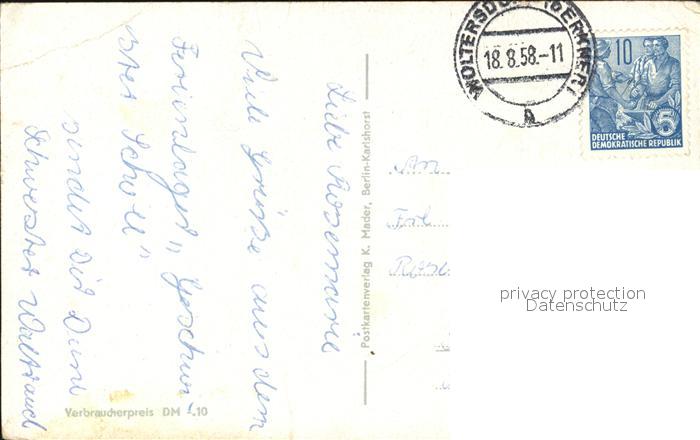 WOLTERSDORF üb ERKNER 1
18.8.58.-11
a
10
5
DEUTSCHE
DEMOKRATISCHE REPUBLIK
Liebe Rosemarie
Viele Grüße aus dem
Ferienlager „Geschwi-
ster Scholl"
sendet Dir Deine
Schwester Waltraud
Postkartenverlag K. Mader, Berlin-Karlshorst
An
Frl.
Verbraucherpreis DM -.10
privacy protection
Datenschutz